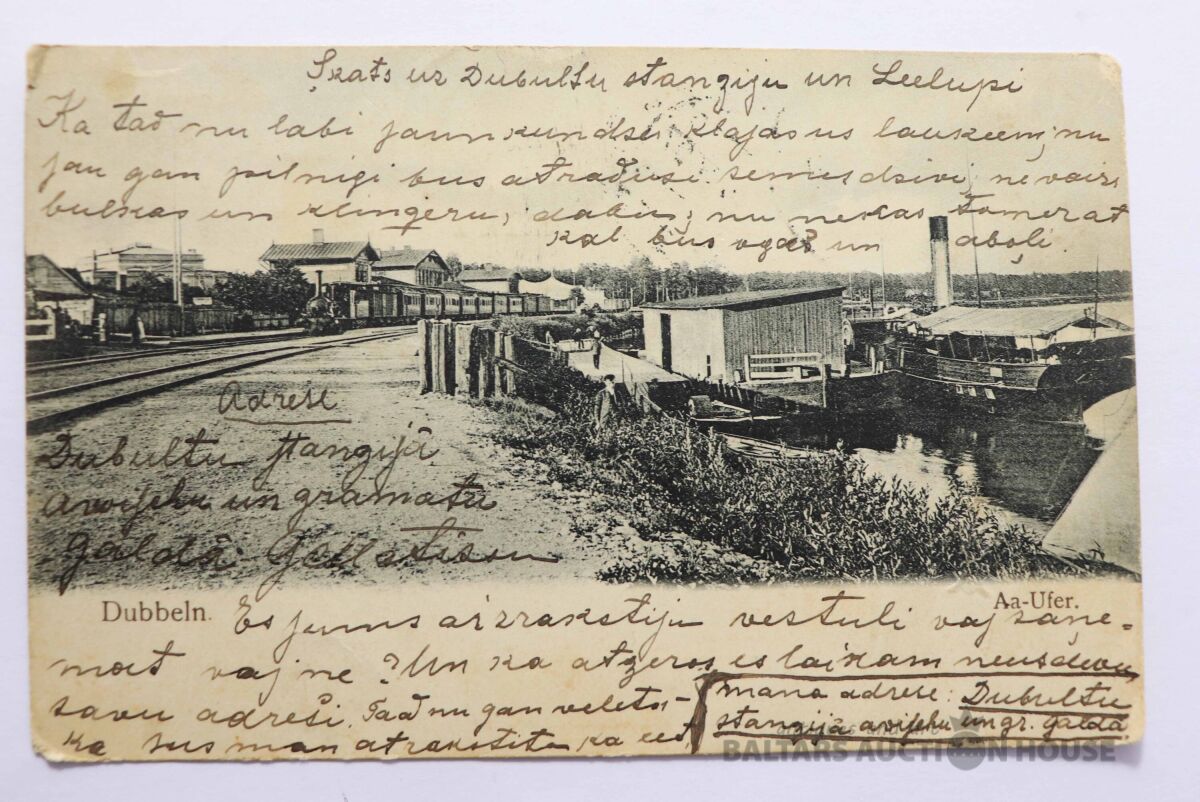 Skats uz Dubultu stanziju un Leelupi
Ka tad nu labi jaunkundsei klajas us laukeem; nu
jau gan pilnigi bus atradusi semes dsivi, nevairs
bulkas un klingeru, dabu; nu nekas tomer at
kal bus ogas un aboļi.
Adrese
Dubultu stanzijā
awischu un gramatu
galdā
Dubbeln.
Aa-Ufer.
Es jums aizrakstiju vestuli vaj saņe-
mat vaj ne? Un ka atzeros es laikam neusdevu
savu adresi. Tad nu gan veleta-
ka jus man atrakstitu ka eet
mana adrese: Dubultu
stanzijā awischu un gr. galdā
BALTARS AUCTION HOUSE